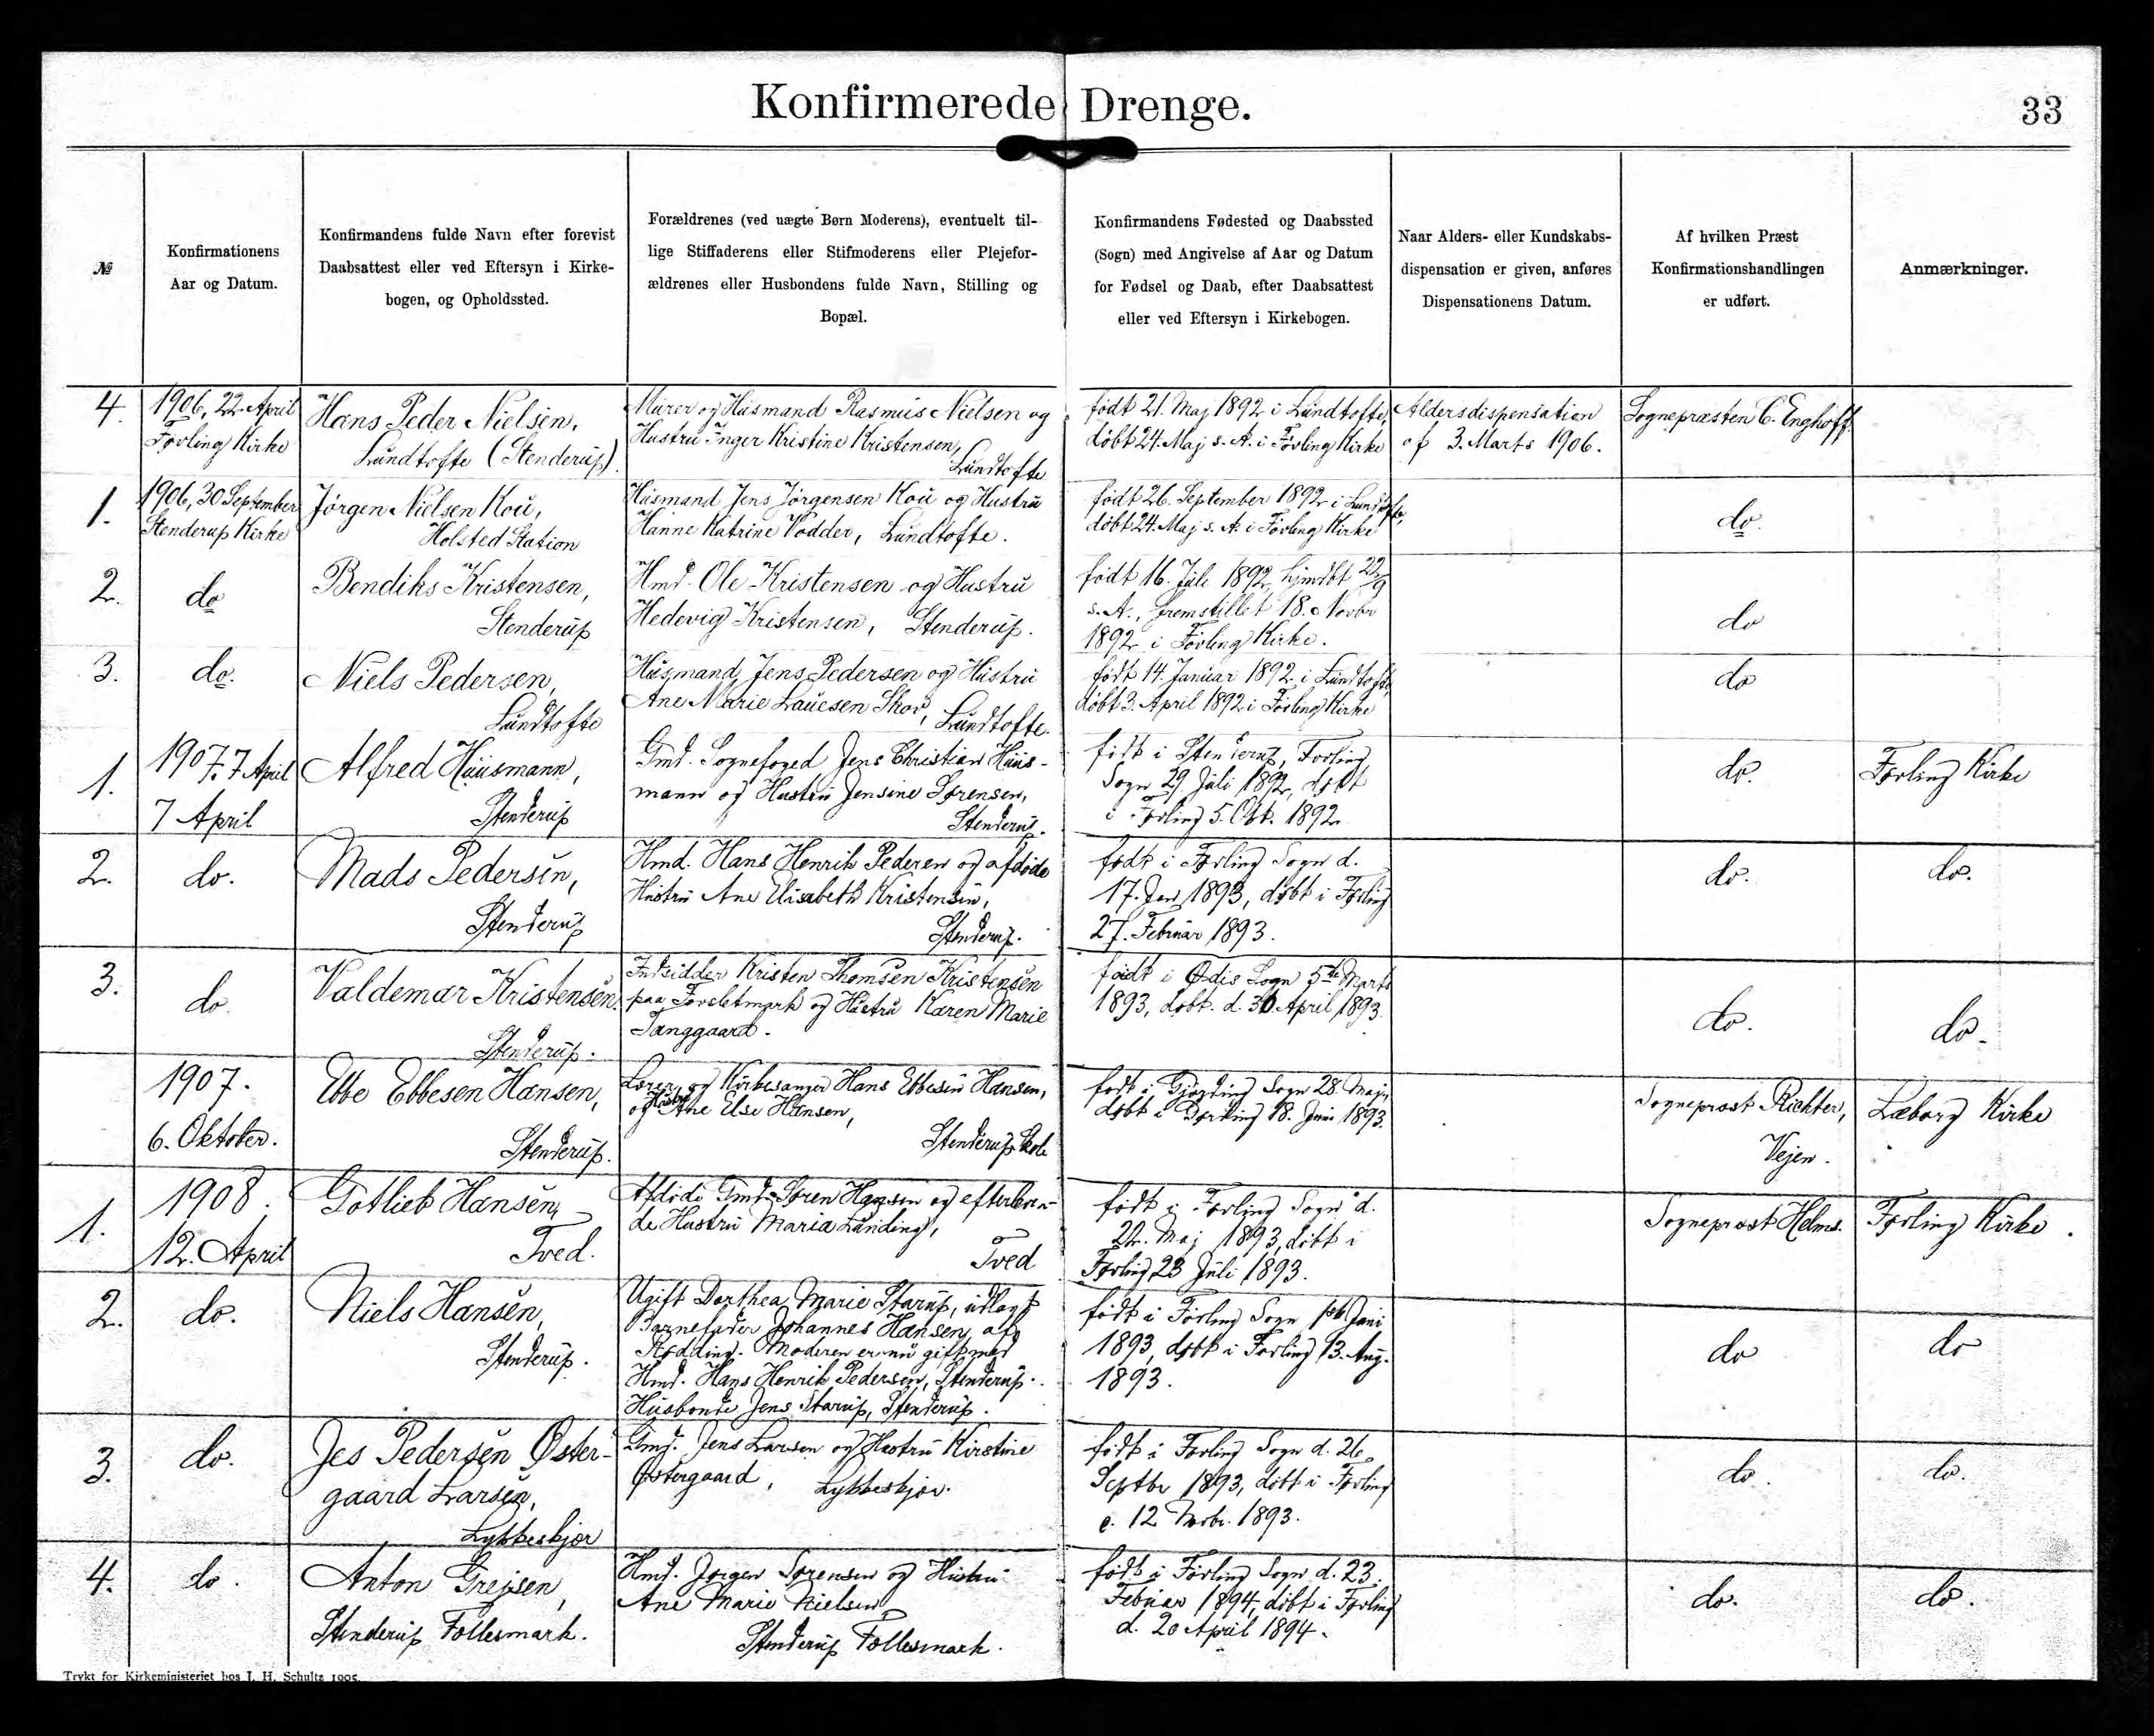 Konfirmerede Drenge.
33
№
Konfirmationens
Aar og Datum.
Konfirmandens fulde Navn efter forevist
Daabsattest eller ved Eftersyn i Kirke-
bogen, og Opholdssted.
Forældrenes (ved uægte Børn Moderens), eventuelt til-
lige Stiffaderens eller Stifmoderens eller Plejefor-
ældrenes eller Husbondens fulde Navn, Stilling og
Bopæl.
Konfirmandens Fødested og Daabssted
(Sogn) med Angivelse af Aar og Datum
for Fødsel og Daab, efter Daabsattest
eller ved Eftersyn i Kirkebogen.
Naar Alders- eller Kundskabs-
dispensation er given, anføres
Dispensationens Datum.
Af hvilken Præst
Konfirmationshandlingen
er udført.
Anmærkninger.
4.
1906, 22 April
Førling Kirke
Hans Peder Nielsen,
Lundtofte (Stenderup).
Murer og Husmand Rasmus Nielsen og
Hustru Inger Kristine Kristensen,
Lundtofte
født 21. Maj 1892 i Lundtofte,
døbt 24. Maj s. A. i Føvling Kirke
Aldersdispensation
af 3. Marts 1906.
Sognepræsten C. Enghoff.
1.
1906, 30 September
Stenderup Kirke
Jørgen Nielsen Kou,
Holsted Station
Husmand Jens Jørgensen Kou og Hustru
Hanne Katrine Vodder, Lundtofte.
født 26. September 1892 i Lundtofte,
døbt 24. Maj s. A. i Føvling Kirke
do.
2.
do
Bendiks Kristensen,
Stenderup
Hmd. Ole Kristensen og Hustru
Hedevig Kristensen, Stenderup.
født 16. Juli 1892, hjmdbt 22/9
s. A., fremstillet 18. Novbr
1892 i Føvling Kirke.
do
3.
do.
Niels Pedersen,
Lundtofte
Husmand Jens Pedersen og Hustru
Ane Marie Lauesen Skov, Lundtofte.
født 14. Januar 1892 i Lundtofte,
døbt 3. April 1892 i Føvling Kirke
do
1.
1907. 7 April
7 April
Alfred Huusmann,
Stenderup
Gmd. Sognefoged Jens Christian Huus-
mann og Hustru Jensine Sørensen,
Stenderup.
født i Stenderup, Føvling
Sogn 29 Juli 1892, døbt
i Føvling 5. Okt. 1892
do.
Føvling Kirke
2.
do.
Mads Pedersen,
Stenderup
Hmd. Hans Henrik Pedersen og afdøde
Hustru Ane Elisabeth Kristensen,
Stenderup.
født i Føvling Sogn d.
17. Jan 1893, døbt i Føvling
27. Februar 1893.
do.
do.
3.
do.
Valdemar Kristensen.
Stenderup.
Indsidder Kristen Thomsen Kristensen
paa Førsletmark og Hustru Karen Marie
Tanggaard.
født i Ødis Sogn 5te Marts
1893, døbt. d. 30 April 1893.
do.
do.
1907.
6. Oktober.
Ebbe Ebbesen Hansen,
Stenderup.
Lærer og Kirkesanger Hans Ebbesen Hansen,
og Hustru Ane Else Hansen,
Stenderup Skole
født i Gjørding Sogn 28. Maj,
døbt i Gjørding 18. Juni 1893.
Sognepræst Richter,
Vejen.
Læborg Kirke
1.
1908.
12. April
Gotlieb Hansen,
Tved.
Afdøde Gmd. Søren Hansen og efterleven-
de Hustru Maria Lunding,
Tved
født i Føvling Sogn d.
22. Maj 1893, døbt i
Føvling 23 Juli 1893.
Sognepræst Helms.
Føvling Kirke.
2.
do.
Niels Hansen,
Stenderup.
Ugift Dorthea Marie Starup, udlagt
Barnefader Johannes Hansen af
Rødding. Moderen er nu gift med
Hmd. Hans Henrik Pedersen, Stenderup.
Husbonde Jens Starup, Stenderup.
født i Føvling Sogn 1ste Juni
1893, døbt i Føvling 13. Aug.
1893.
do
do
3.
do.
Jes Pedersen Øster-
gaard Larsen,
Lykkeskjær
Gmd. Jens Larsen og Hustru Kirstine
Østergaard, Lykkeskjær.
født i Føvling Sogn d. 26
Septbr 1893, døbt i Føvling
d. 12 Novbr. 1893.
do.
do.
4.
do.
Anton Grejsen,
Stenderup Fællesmark.
Hmd. Jørgen Sørensen og Hustru
Ane Marie Nielsen
Stenderup Fællesmark.
født i Føvling Sogn d. 23.
Februar 1894, døbt i Føvling
d. 20 April 1894.
do.
do.
Trykt for Kirkeministeriet hos J. H. Schultz 1905.